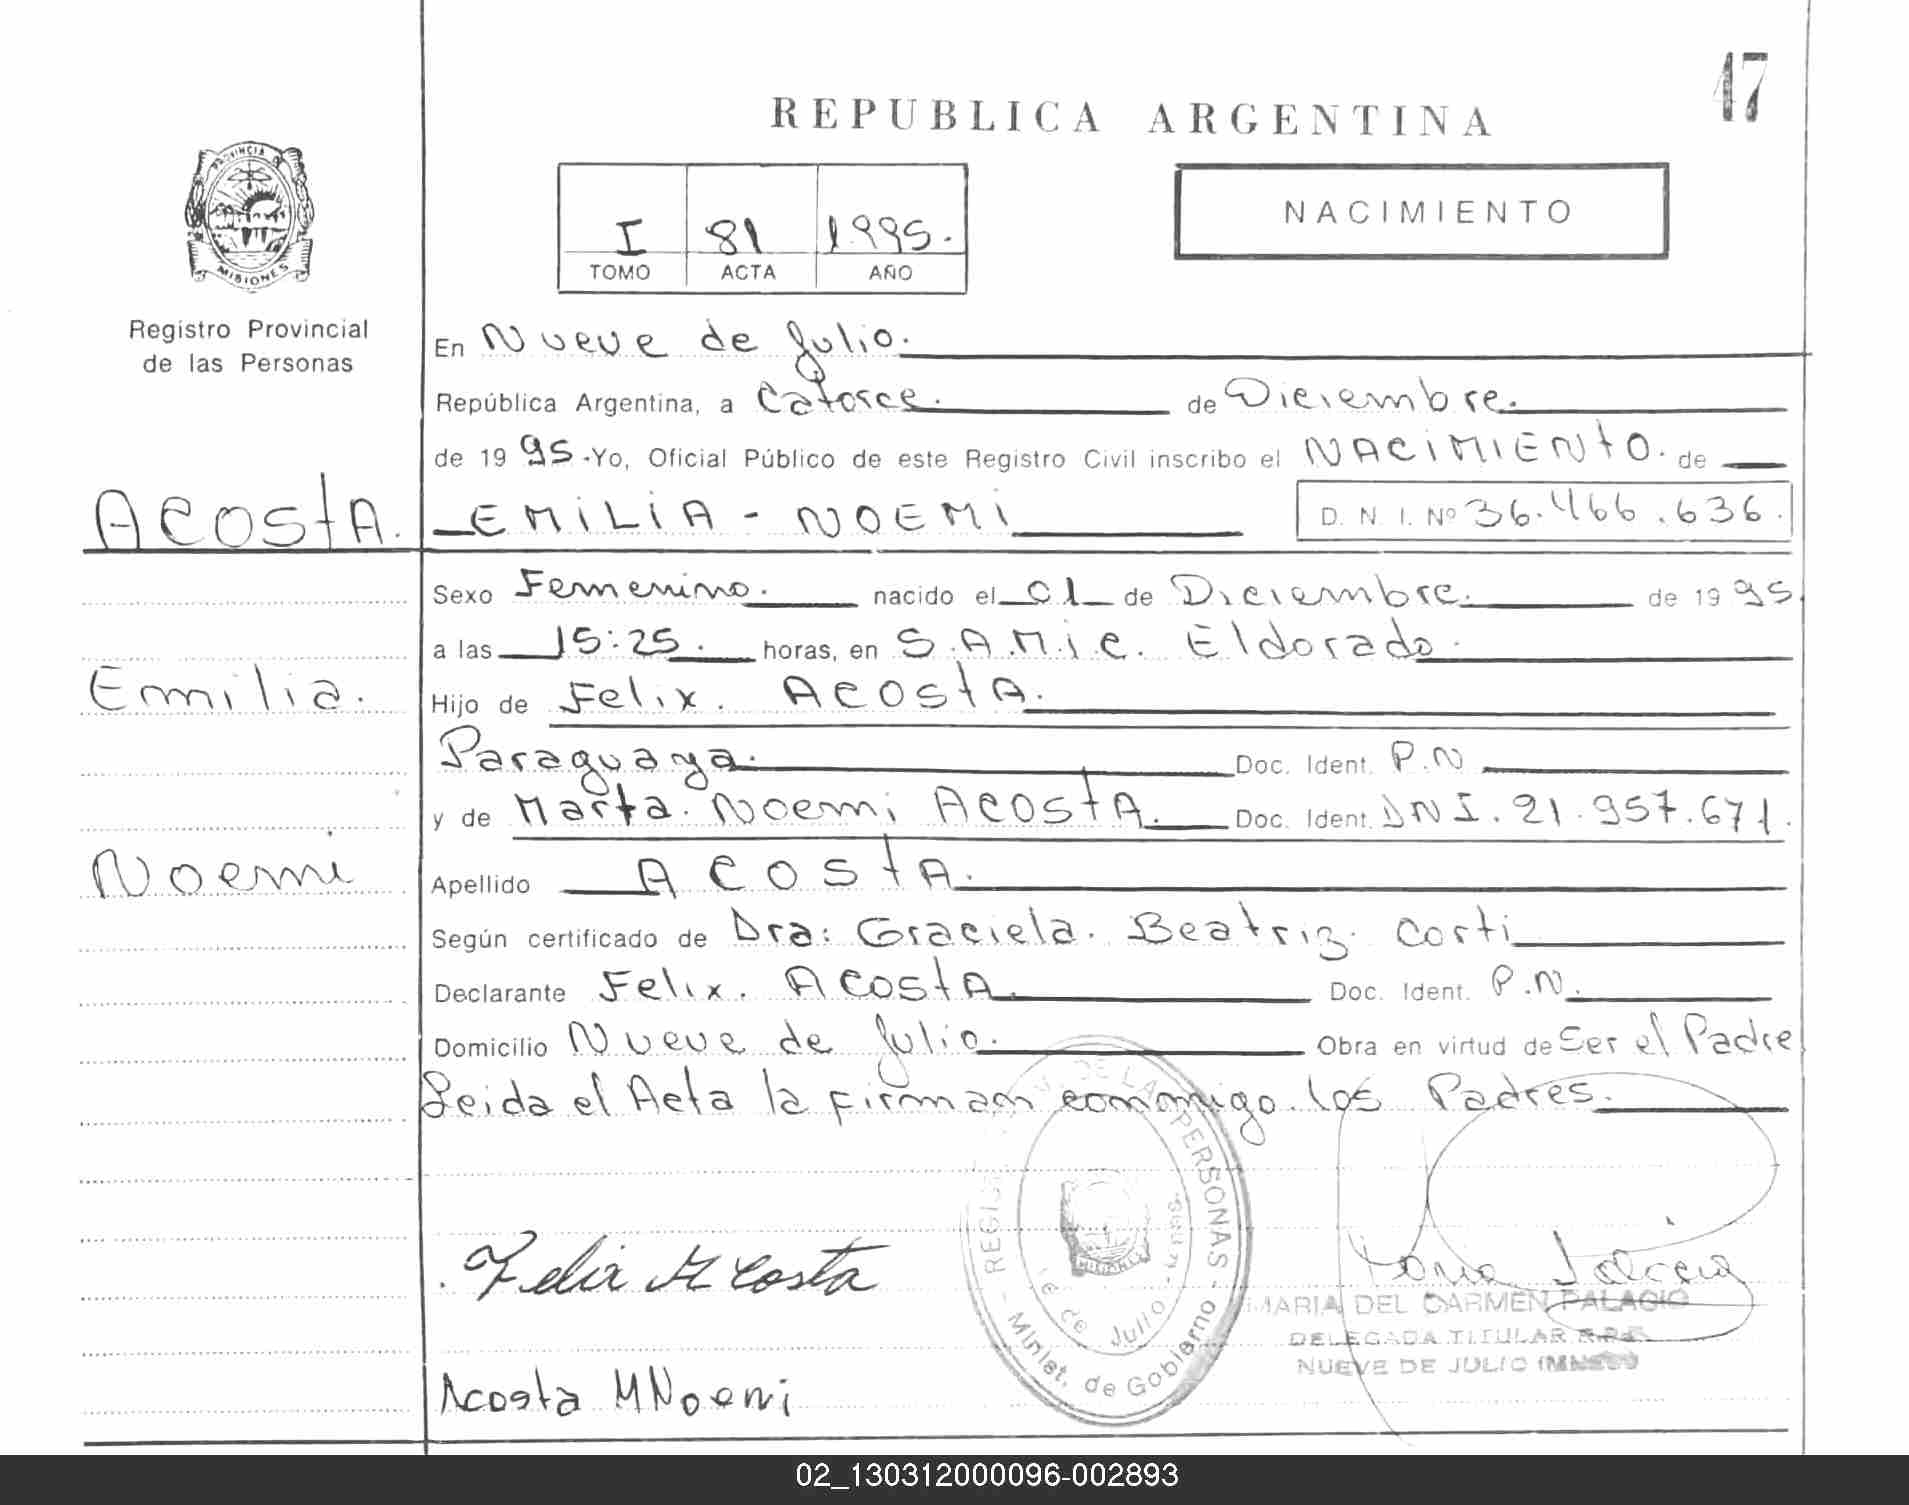 47
REPUBLICA ARGENTINA
PROVINCIA DE
MISIONES
Registro Provincial
de las Personas
I 81 1995.
TOMO ACTA AÑO
NACIMIENTO
En Nueve de Julio.
República Argentina, a Catorce. de Diciembre.
de 1995.-Yo, Oficial Público de este Registro Civil inscribo el NACiMIENtO. de
ACOStA. EMiLiA - NOEMi D. N. I. Nº 36.466.636.
Sexo Femenino. nacido el 01 de Diciembre. de 1995
a las 15:25. horas, en S.A.M.i.c. Eldorado.
Emilia. Hijo de Felix. ACOStA.
Paraguaya. Doc. Ident. P.N
y de Marta. Noemi ACOStA. Doc. Ident. DNI. 21.957.671.
Noemi Apellido ACOStA.
Según certificado de Dra: Graciela. Beatriz. Corti
Declarante Felix. ACOStA. Doc. Ident. P.N.
Domicilio Nueve de Julio. Obra en virtud de Ser el Padre
Leida el Acta la firman conmigo. los Padres.
REGIST DE LAS PERSONAS - Minist. de Gobierno -
de Julio - Misiones
Felix Acosta
MARIA DEL CARMEN PALACIO
DELEGADA TITULAR R.P.P.
NUEVE DE JULIO
Acosta MNoemi
02_130312000096-002893